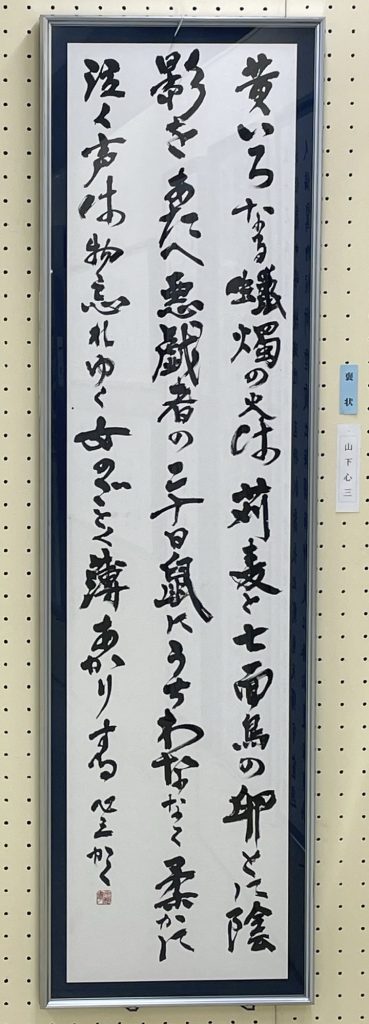 黄いろなる蠟燭の火は苅麦と七面鳥の卵とに陰
影をあたへ悪戯者の二十日鼠にうちわななく柔かに
泣く声は物忘れゆく女のごとく薄あかりする 心三かく
褒状
山下心三